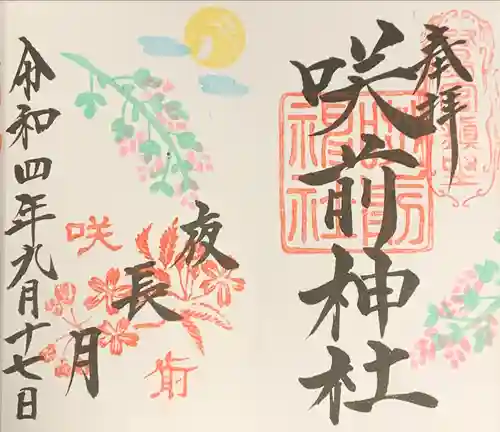 奉拝
咲前神社
夜長月
咲前
令和四年九月十七日